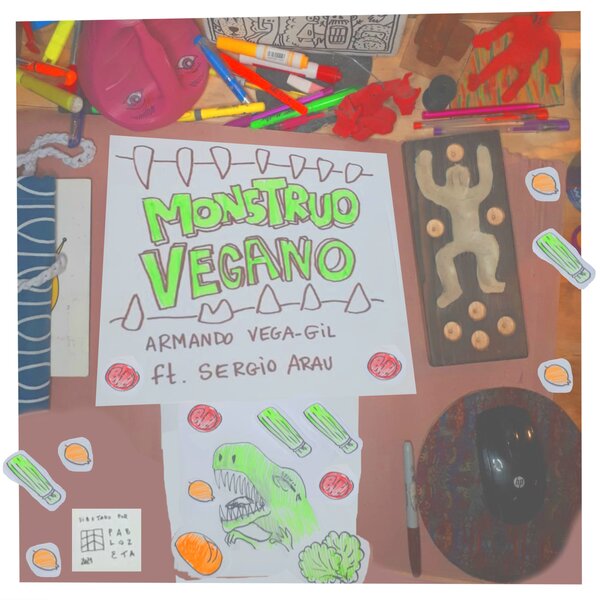 MONSTRUO
VEGANO
ARMANDO VEGA-GIL
ft. SERGIO ARAU
DIBUJADO POR
PAB
LOZ
ETA
hp